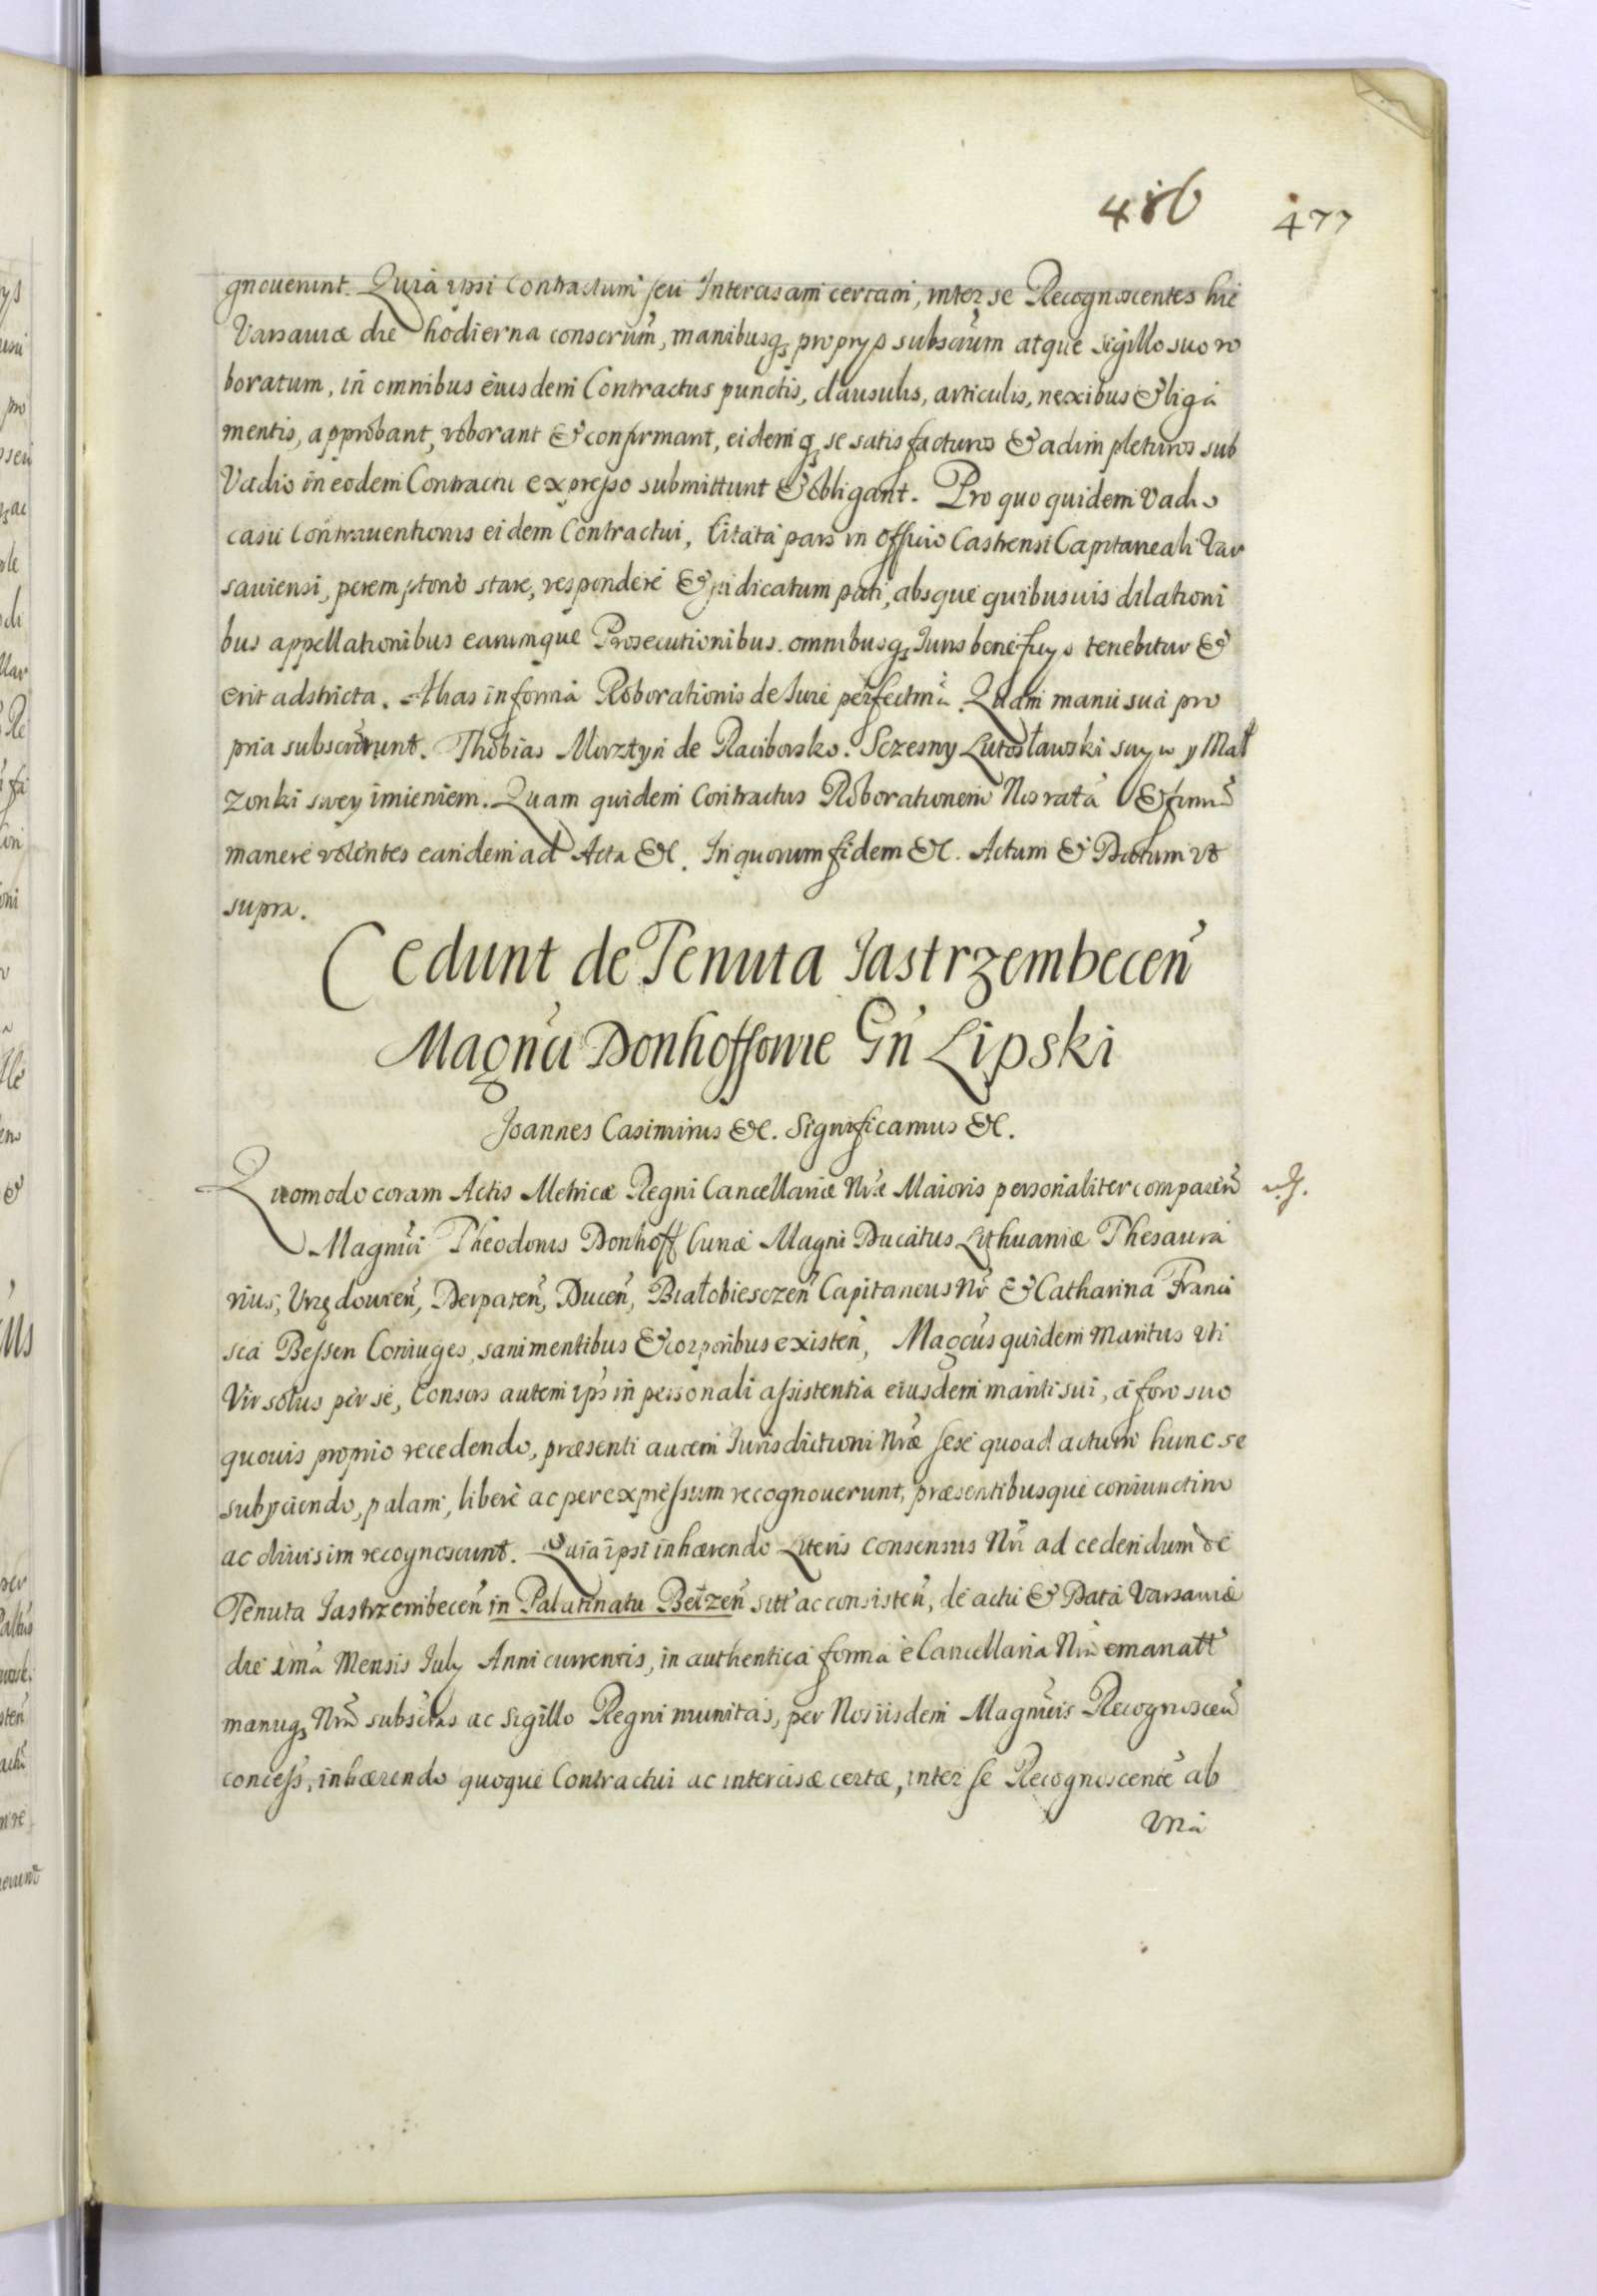 486 477
gnouerunt. Quia ipsi Contractum seu Intercisam certam, inter se Recognoscentes hic
Varsauiæ die hodierna conscrium̃, manibusq₃ proprijs subscrium̃ atque sigillo suo ro
boratum, in omnibus eiusdem Contractus punctis, clausulis, articulis, nexibus & liga
mentis, approbant, roborant & confirmant, eidemq₃ se satisfacturos & adimpleturos sub
Vadio in eodem Contractu expresso submittunt & obligant. Pro quo quidem Vadio
casu Contrauentionis eidem Contractui, Citata pars in Officio Castrensi Capitaneali Var
sauiensi, peremptorio stare, respondere & iudicatum pati, absque quibusuis dilationi
bus appellationibus earumque Prosecutionibus. omnibusq₃ Iuris beneficijs tenebitur &
erit adstricta. Alias in forma Roborationis de Iure perfectm̃a. Quam manu sua pro
pria subscrũrunt. Thobias Morztyn de Raciborsko. Sczesny Lutosławski swym y Mał
zonki swey imieniem. Quam quidem Contractus Roborationem Nos ratã & firmũ
manere volentes eandem ad Acta &c. In quorum fidem &c. Actum & Datum vt
supra.
Cedunt de Tenuta Iastrzembeceñ
Magñci Donhoffowie Gñ Lipski
Joannes Casimirus &c. Significamus &c.
Quomodo coram Actis Metricæ Regni Cancellariæ Nr̃æ Maioris personaliter compareñ
Magnĩci Theodorus Donhoff Curiæ Magni Ducatus Lithuaniæ Thesaura
rius, Vrzędouieñ, Derpateñ, Duceñ, Białobieszczeñ Capitaneus Nr̃ & Catharina Franci
sca Bessen Coniuges, sani mentibus & corporibus existeñ, Magcũs quidem Maritus vti
Vir solus per se, Consors autem ips̃ in personali assistentia eiusdem mariti sui, a foro suo
quouis proprio recedendo, præsenti autem Iurisdictioni Nr̃æ sese quoad actum hunc se
subijciendo, palam, libere ac per expressum recognouerunt, præsentibusque coniunctim
ac diuisim recognoscunt. Quia ipsi inhærendo Literis Consensus Nr̃i ad cedendum de
Tenuta Iastrzembeceñ in Palatinatu Bełzeñ sitt̃ ac consisteñ, de actu & Data Varsauiæ
die 1ma Mensis July Anni currentis, in authentica forma è Cancellaria Nr̃a emanatt̃
manuq₃ Nr̃a subscr̃tas ac Sigillo Regni munitas, per Nos iisdem Magnĩcis Recognosceñ
concess̃, inhærendo quoque Contractui ac intercisæ certæ, inter se Recognoscente ab
vna